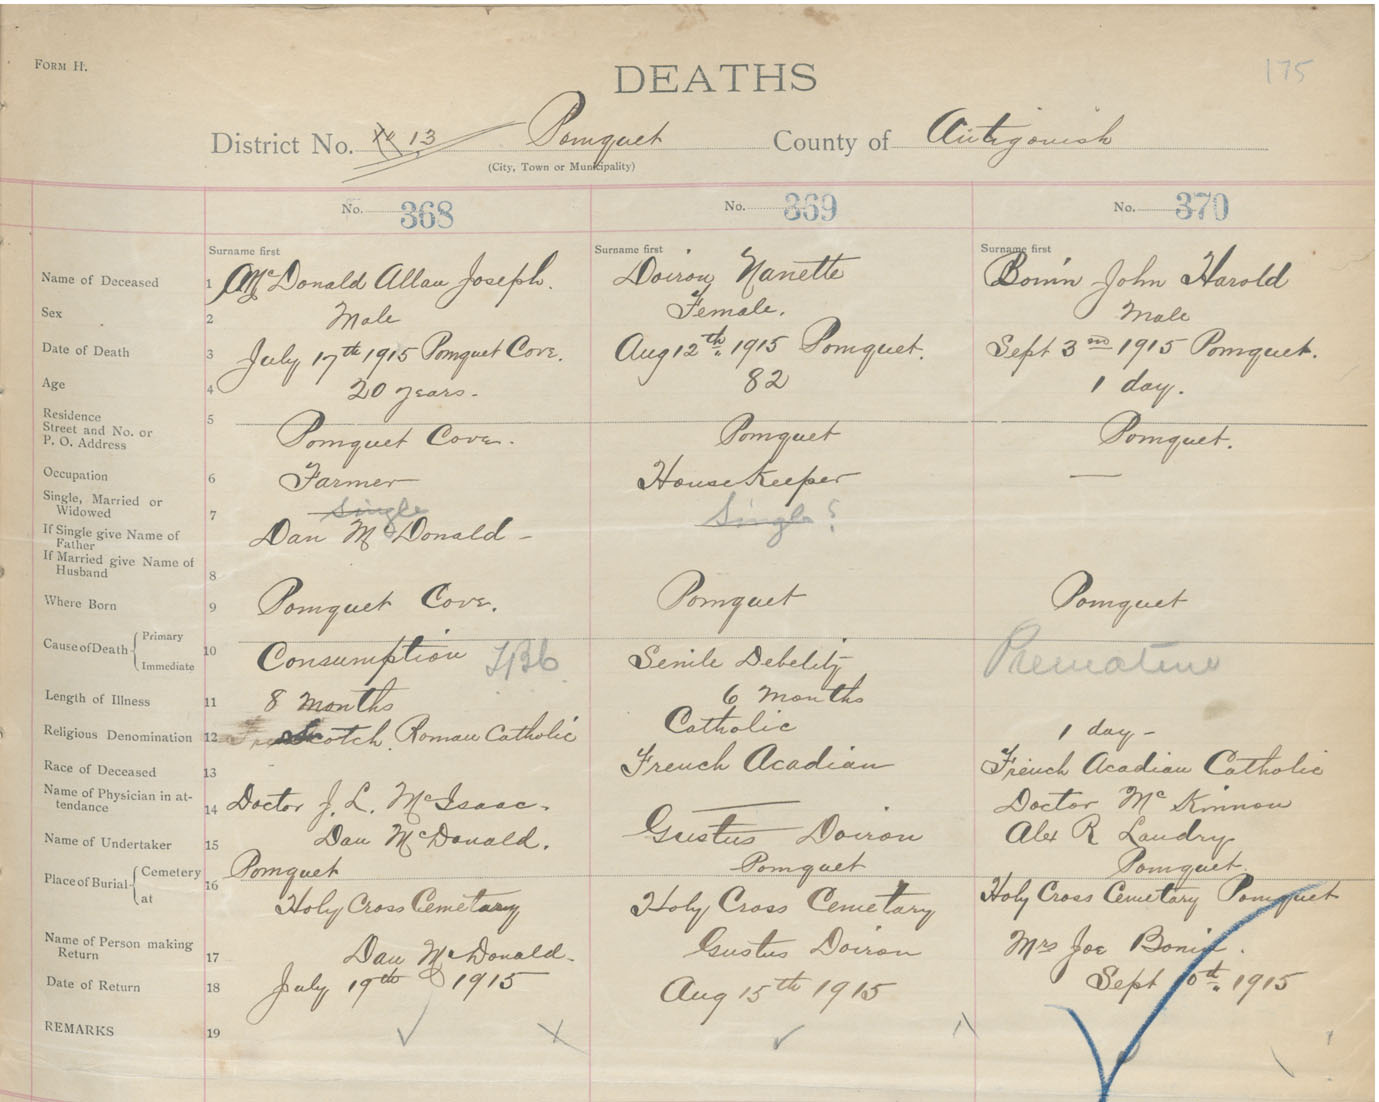 FORM H.
175
DEATHS
District No. 13 Pomquet County of Antigonish
(City, Town or Municipality)
No. 368 No. 369 No. 370
Surname first Surname first Surname first
Name of Deceased 1 McDonald Allan Joseph. Doiron Nanette Bonin John Harold
Sex 2 Male Female. Male
Date of Death 3 July 17th 1915 Pomquet Cove. Aug 12th. 1915 Pomquet. Sept 3nd 1915 Pomquet.
Age 4 20 years. 82 1 day.
Residence 5
Street and No. or
P. O. Address Pomquet Cove. Pomquet Pomquet.
Occupation 6 Farmer House Keeper —
Single, Married or
Widowed 7 Single Single?
If Single give Name of
Father Dan McDonald –
If Married give Name of
Husband 8
Where Born 9 Pomquet Cove. Pomquet Pomquet
Cause of Death { Primary
Immediate 10 Consumption Senile Debelity Premature
Length of Illness 11 8 Months 6 Months
Religious Denomination 12 Scotch. Roman Catholic Catholic 1 day –
Race of Deceased 13 French Acadian French Acadian Catholic
Name of Physician in at-
tendance 14 Doctor J. L. McIsaac. — Doctor McKinnon
Name of Undertaker 15 Dan McDonald. Gustus Doiron Alex R Landry
Place of Burial { Cemetery
at 16 Pomquet Pomquet Pomquet.
Holy Cross Cemetary Holy Cross Cemetary Holy Cross Cemetary Pomquet
Name of Person making
Return 17 Dan McDonald. Gustus Doiron Mrs Joe Bonin.
Date of Return 18 July 19th 1915 Aug 15th 1915 Sept th. 1915
REMARKS 19